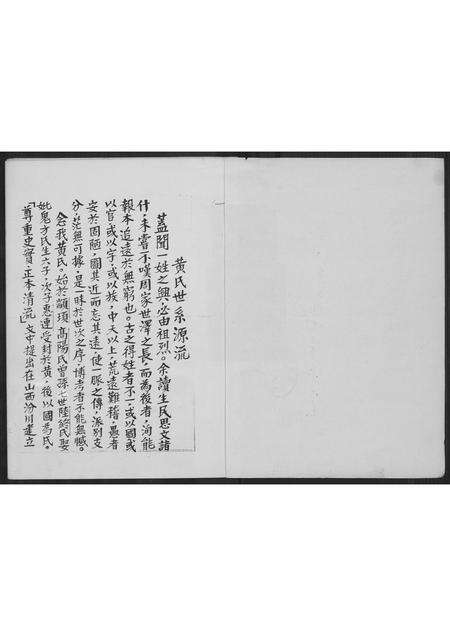 黃氏世系源流
蓋聞一姓之興，必由祖烈。余讀生民思文諸
什，未嘗不嘆周家世澤之長，而為後者，洵能
報本追遠於無窮也。古之得姓者不一，或以國或
以官或以字，或以族，中天以上，荒遠難稽，愚者
安於固陋，圖其近而忘其遠，使一脈之傳，派別支
分，茫無可據，是一昧於世次之序，博考者不能無憾。
念我黃氏。始於顓頊高陽氏曾孫七世陸終氏娶
妣鬼方氏生六子，次子惠連受封於黃，後以國為氏。
「尊重史實，正本清流」文中提出在山西汾川建立